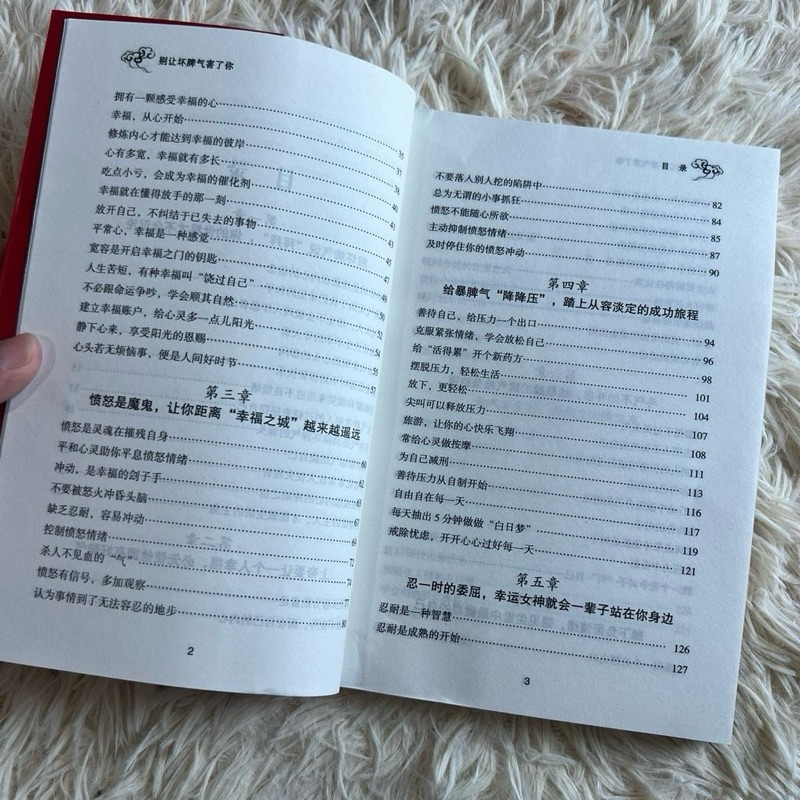 别让坏脾气害了你
拥有一颗感受幸福的心
幸福，从心开始 35
修炼内心才能达到幸福的彼岸 37
心有多宽，幸福就有多长 38
吃点小亏，会成为幸福的催化剂 40
幸福就在懂得放手的那一刻 41
放开自己，不纠结于已失去的事物 43
平常心，幸福是一种感觉 45
宽容是开启幸福之门的钥匙 46
人生苦短，有种幸福叫“饶过自己” 49
不必跟命运争吵，学会顺其自然 50
建立幸福账户，给心灵多一点儿阳光 52
静下心来，享受阳光的恩赐 54
心头若无烦恼事，便是人间好时节 55
57
第三章
愤怒是魔鬼，让你距离“幸福之城”越来越遥远
愤怒是灵魂在摧残自身 60
平和心灵助你平息愤怒情绪 62
冲动，是幸福的刽子手 65
不要被怒火冲昏头脑 67
缺乏忍耐，容易冲动 69
控制愤怒情绪 72
杀人不见血的“气” 74
愤怒有信号，多加观察 77
认为事情到了无法容忍的地步 80
2
目 录
不要落入别人挖的陷阱中 82
总为无谓的小事抓狂 84
愤怒不能随心所欲 85
主动抑制愤怒情绪 87
及时停住你的愤怒冲动 90
第四章
给暴脾气“降降压”，踏上从容淡定的成功旅程
善待自己，给压力一个出口 94
克服紧张情绪，学会放松自己 96
给“活得累”开个新药方 98
摆脱压力，轻松生活 101
放下，更轻松 104
尖叫可以释放压力 107
旅游，让你的心快乐飞翔 108
常给心灵做按摩 111
为自己减刑 113
善待压力从自制开始 116
自由自在每一天 117
每天抽出5分钟做做“白日梦” 119
戒除忧虑，开开心心过好每一天 121
第五章
忍一时的委屈，幸运女神就会一辈子站在你身边
忍耐是一种智慧 126
忍耐是成熟的开始 127
3